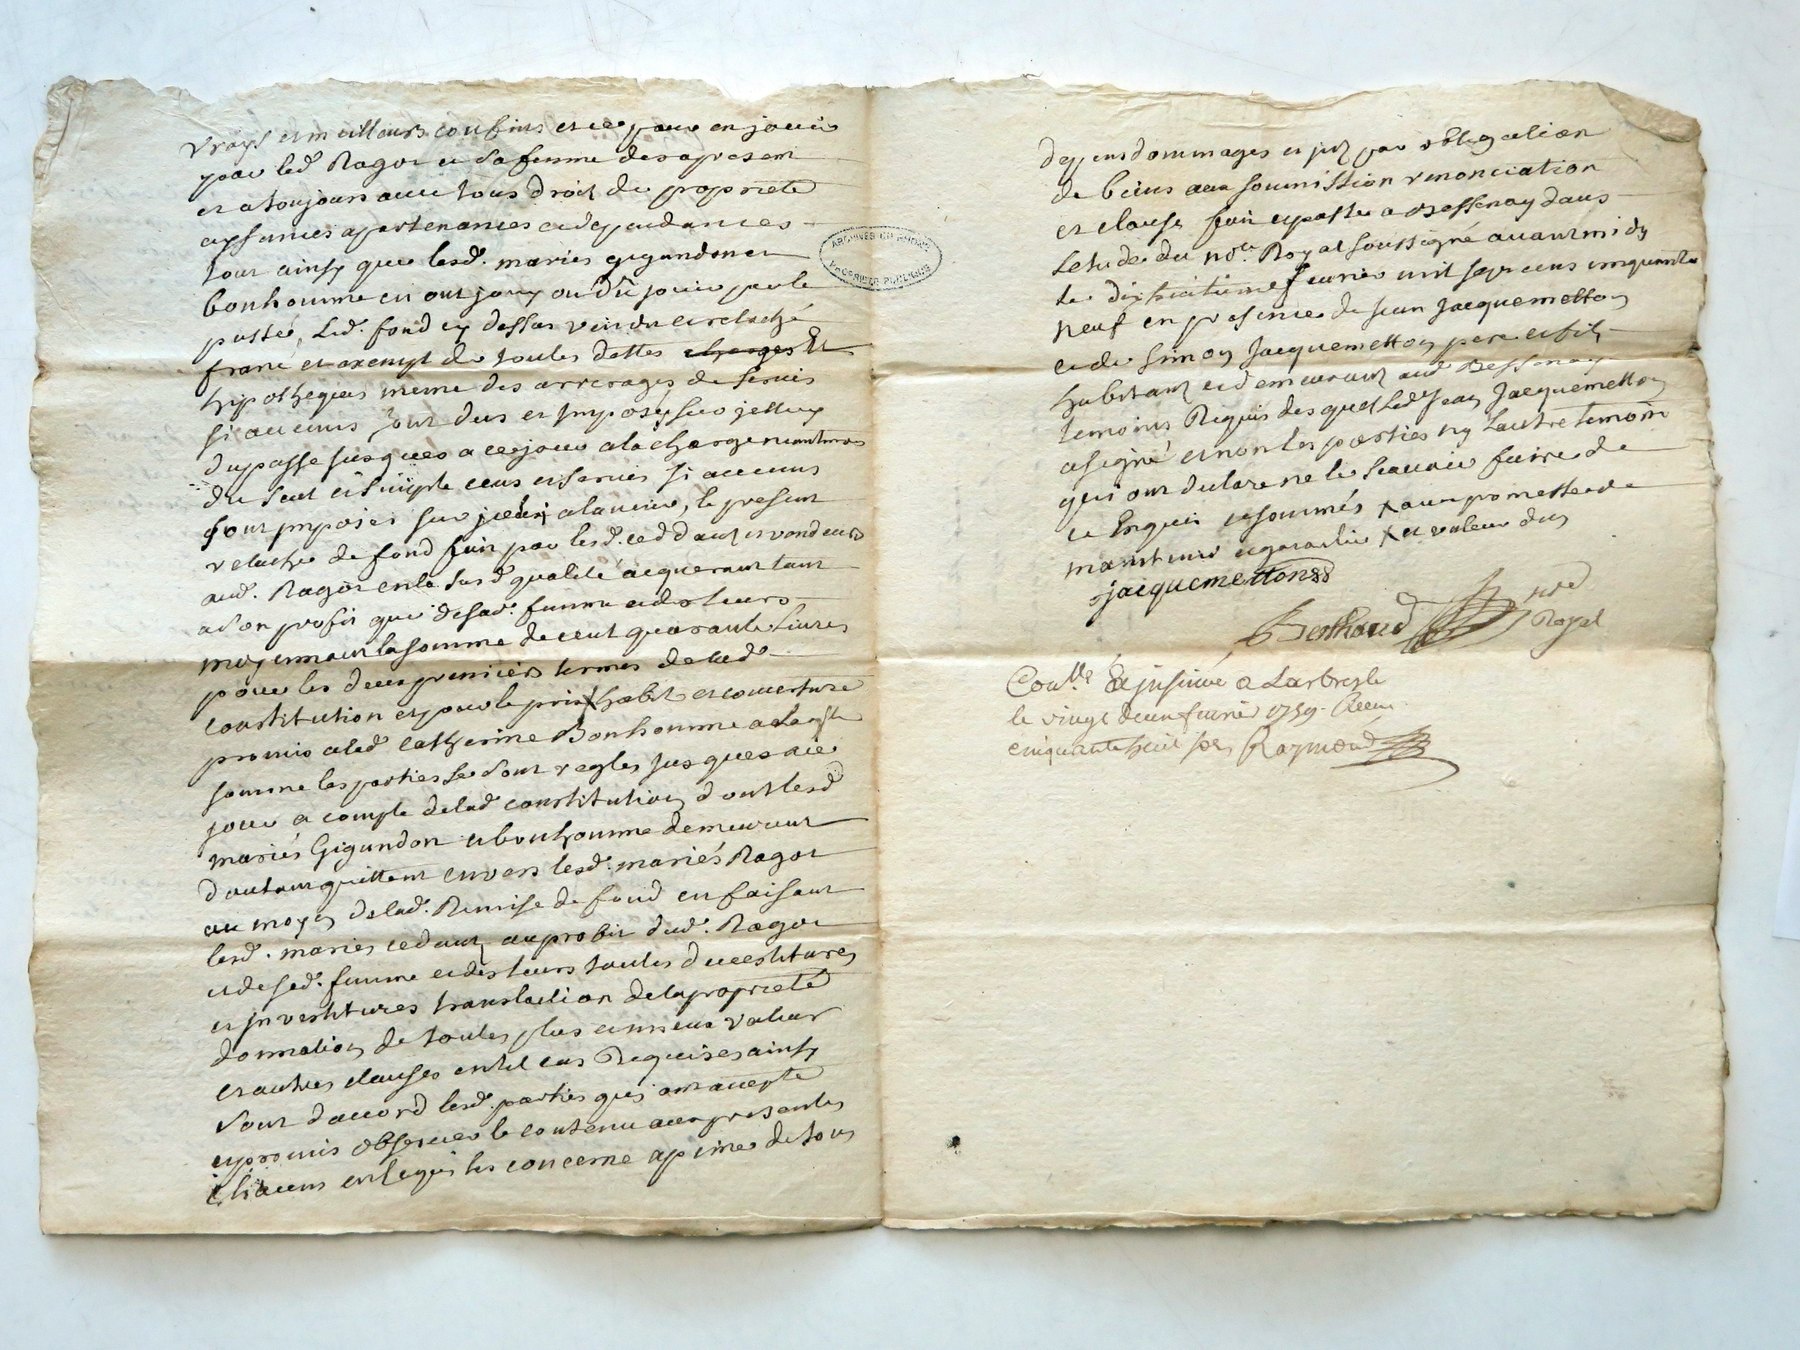 vrays et meilleurs confins et ce pour en jouir
par led. Ragot et sa femme des apresent
et a toujours avec tous droit de propriete
aysances apartenances et dependances
tout ainsy que lesd. mariés gigandon et
bonhomme en ont jouy ou dû jouir par le
passé, Led. fond cy dessus vendu et relaché
franc et exempt de toutes dettes charges Et
hipotheques meme des arrerages de servis
si aucuns sont dus et Imposés sur jcelluy
du passé jusques a ce jour a la charge neantmoins
du seul et simple cens et servis si aucuns
sont jmposés sur jceluy a lavenir, le present
relache de fond fait par lesd. ceddants et vendeurs
aud. Ragot en la susd. qualité acquerant tant
a son profit que de sad. femme et des leurs
moyennant la somme de cent quarante Livres
pour les deux premiers termes de lad.
constitution et pour le prix habit et couverture
promis a lad. Catherine Bonhomme a laquelle
somme les parties se sont reglés jusques a ce
jour a compte de lad. constitution dont lesd.
mariés Gigandon et bonhomme demeurent
dautant quittent envers lesd. mariés Ragot
au moyen de lad. Remise de fond en faisant
lesd. mariés cedants au profit dud. Ragot
et de sad. femme et des leurs toutes devestitures
et jnvestitures translation de la propriete
donnation de toutes plus et mieux valeur
et autres clauses en tel cas Requises ainsy
sont daccord lesd. parties qui ont accepté
et promis observer le contenu aux presentes
chacun en ce qui les concerne a peines de tous
depens dommages et jnts par obligation
de biens aux soumission renonciation
et clause fait et passé a Bessenay dans
Letude du nore. Royal soussigné avant midy
le dixhuitieme fevrier mil sept cens cinquante
neuf en presence de jean jacquemetton
et de simon jacquemetton pere et fils
habitants et demeurants aud. Bessenay
temoins Requis desquels Led. jean jacquemetton
a signé et non les parties ny lautre temoin
qui ont declaré ne le scavoir faire de
ce Enquis et sommés x avec promesse de
maintenir et garantir x et valeur dus
jacquemetton
Berthoud nre
Royal
Conllé & jnsinué a Larbresle
le vingt deux fevrier 1759. Receu
cinquante huit sols Raymond
ARCHIVES DU RHONE
PROPRIETE PUBLIQUE